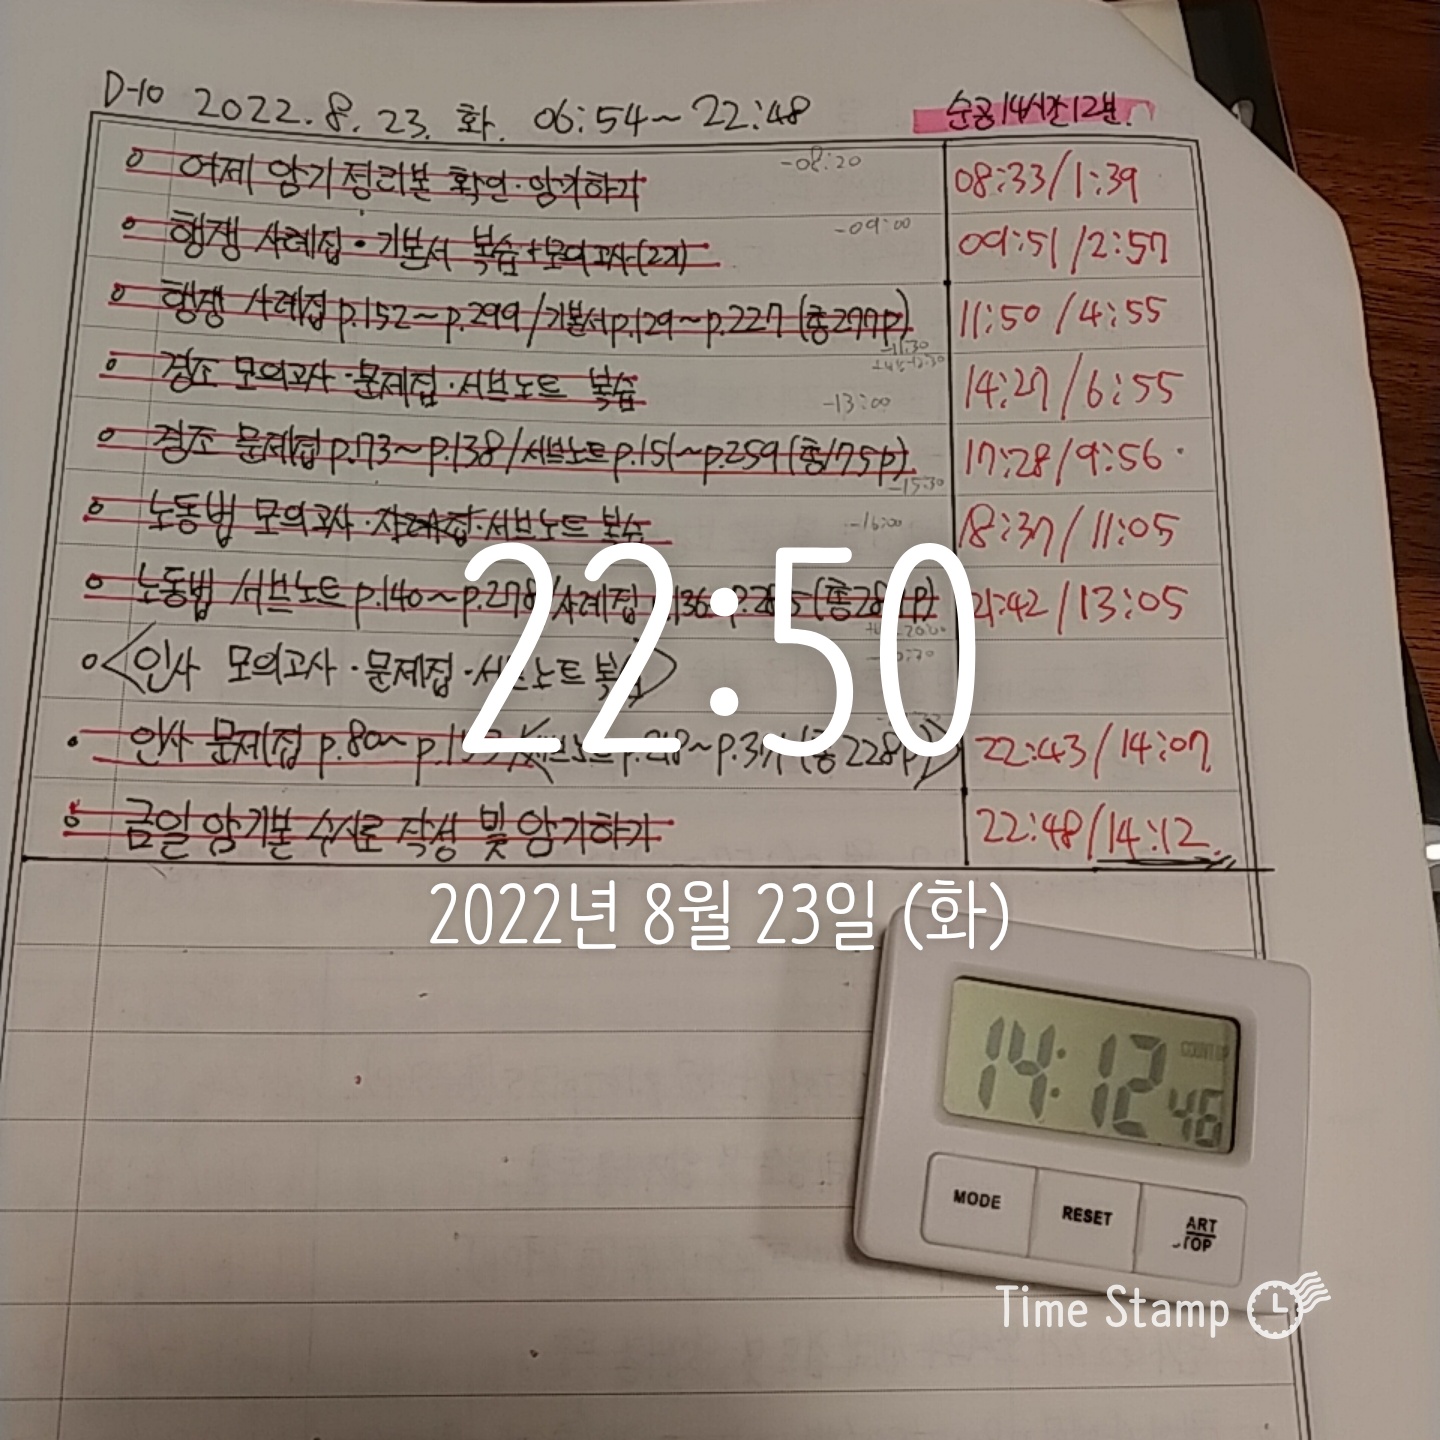 D-10 2022. 8. 23. 화. 06:54~22:48 순공 14시간 12분.
어제 암기정리본 확인·암기하기 -08:20 08:33/1:39
행쟁 사례집·기본서 복습+모의고사(2기) -09:00 09:51/2:57
행쟁 사례집 p.152~p.299/기본서 p.129~p.227 (총277p) -11:30 11:50/4:55
경조 모의고사·문제집·서브노트 복습 -13:00 14:27/6:55
경조 문제집 p.73~p.138/서브노트 p.151~p.259 (총175p) -15:30 17:28/9:56
노동법 모의고사·사례집·서브노트 복습 -16:00 18:37/11:05
노동법 서브노트 p.140~p.278/사례집 21:42/13:05
<인사 모의고사·문제집·서브노트 복습>
인사 문제집 p.80~ (총228p) 22:43/14:07
금일 암기본 수시로 작성 및 암기하기 22:48/14:12
22:50
2022년 8월 23일 (화)
14:12 46
COUNT UP
MODE RESET ART TOP
Time Stamp